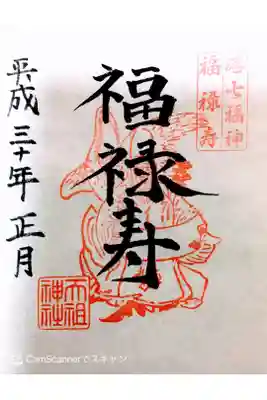 港七福神
福禄寿
福禄寿
平成三十年正月
天祖
神社
CamScannerでスキャン